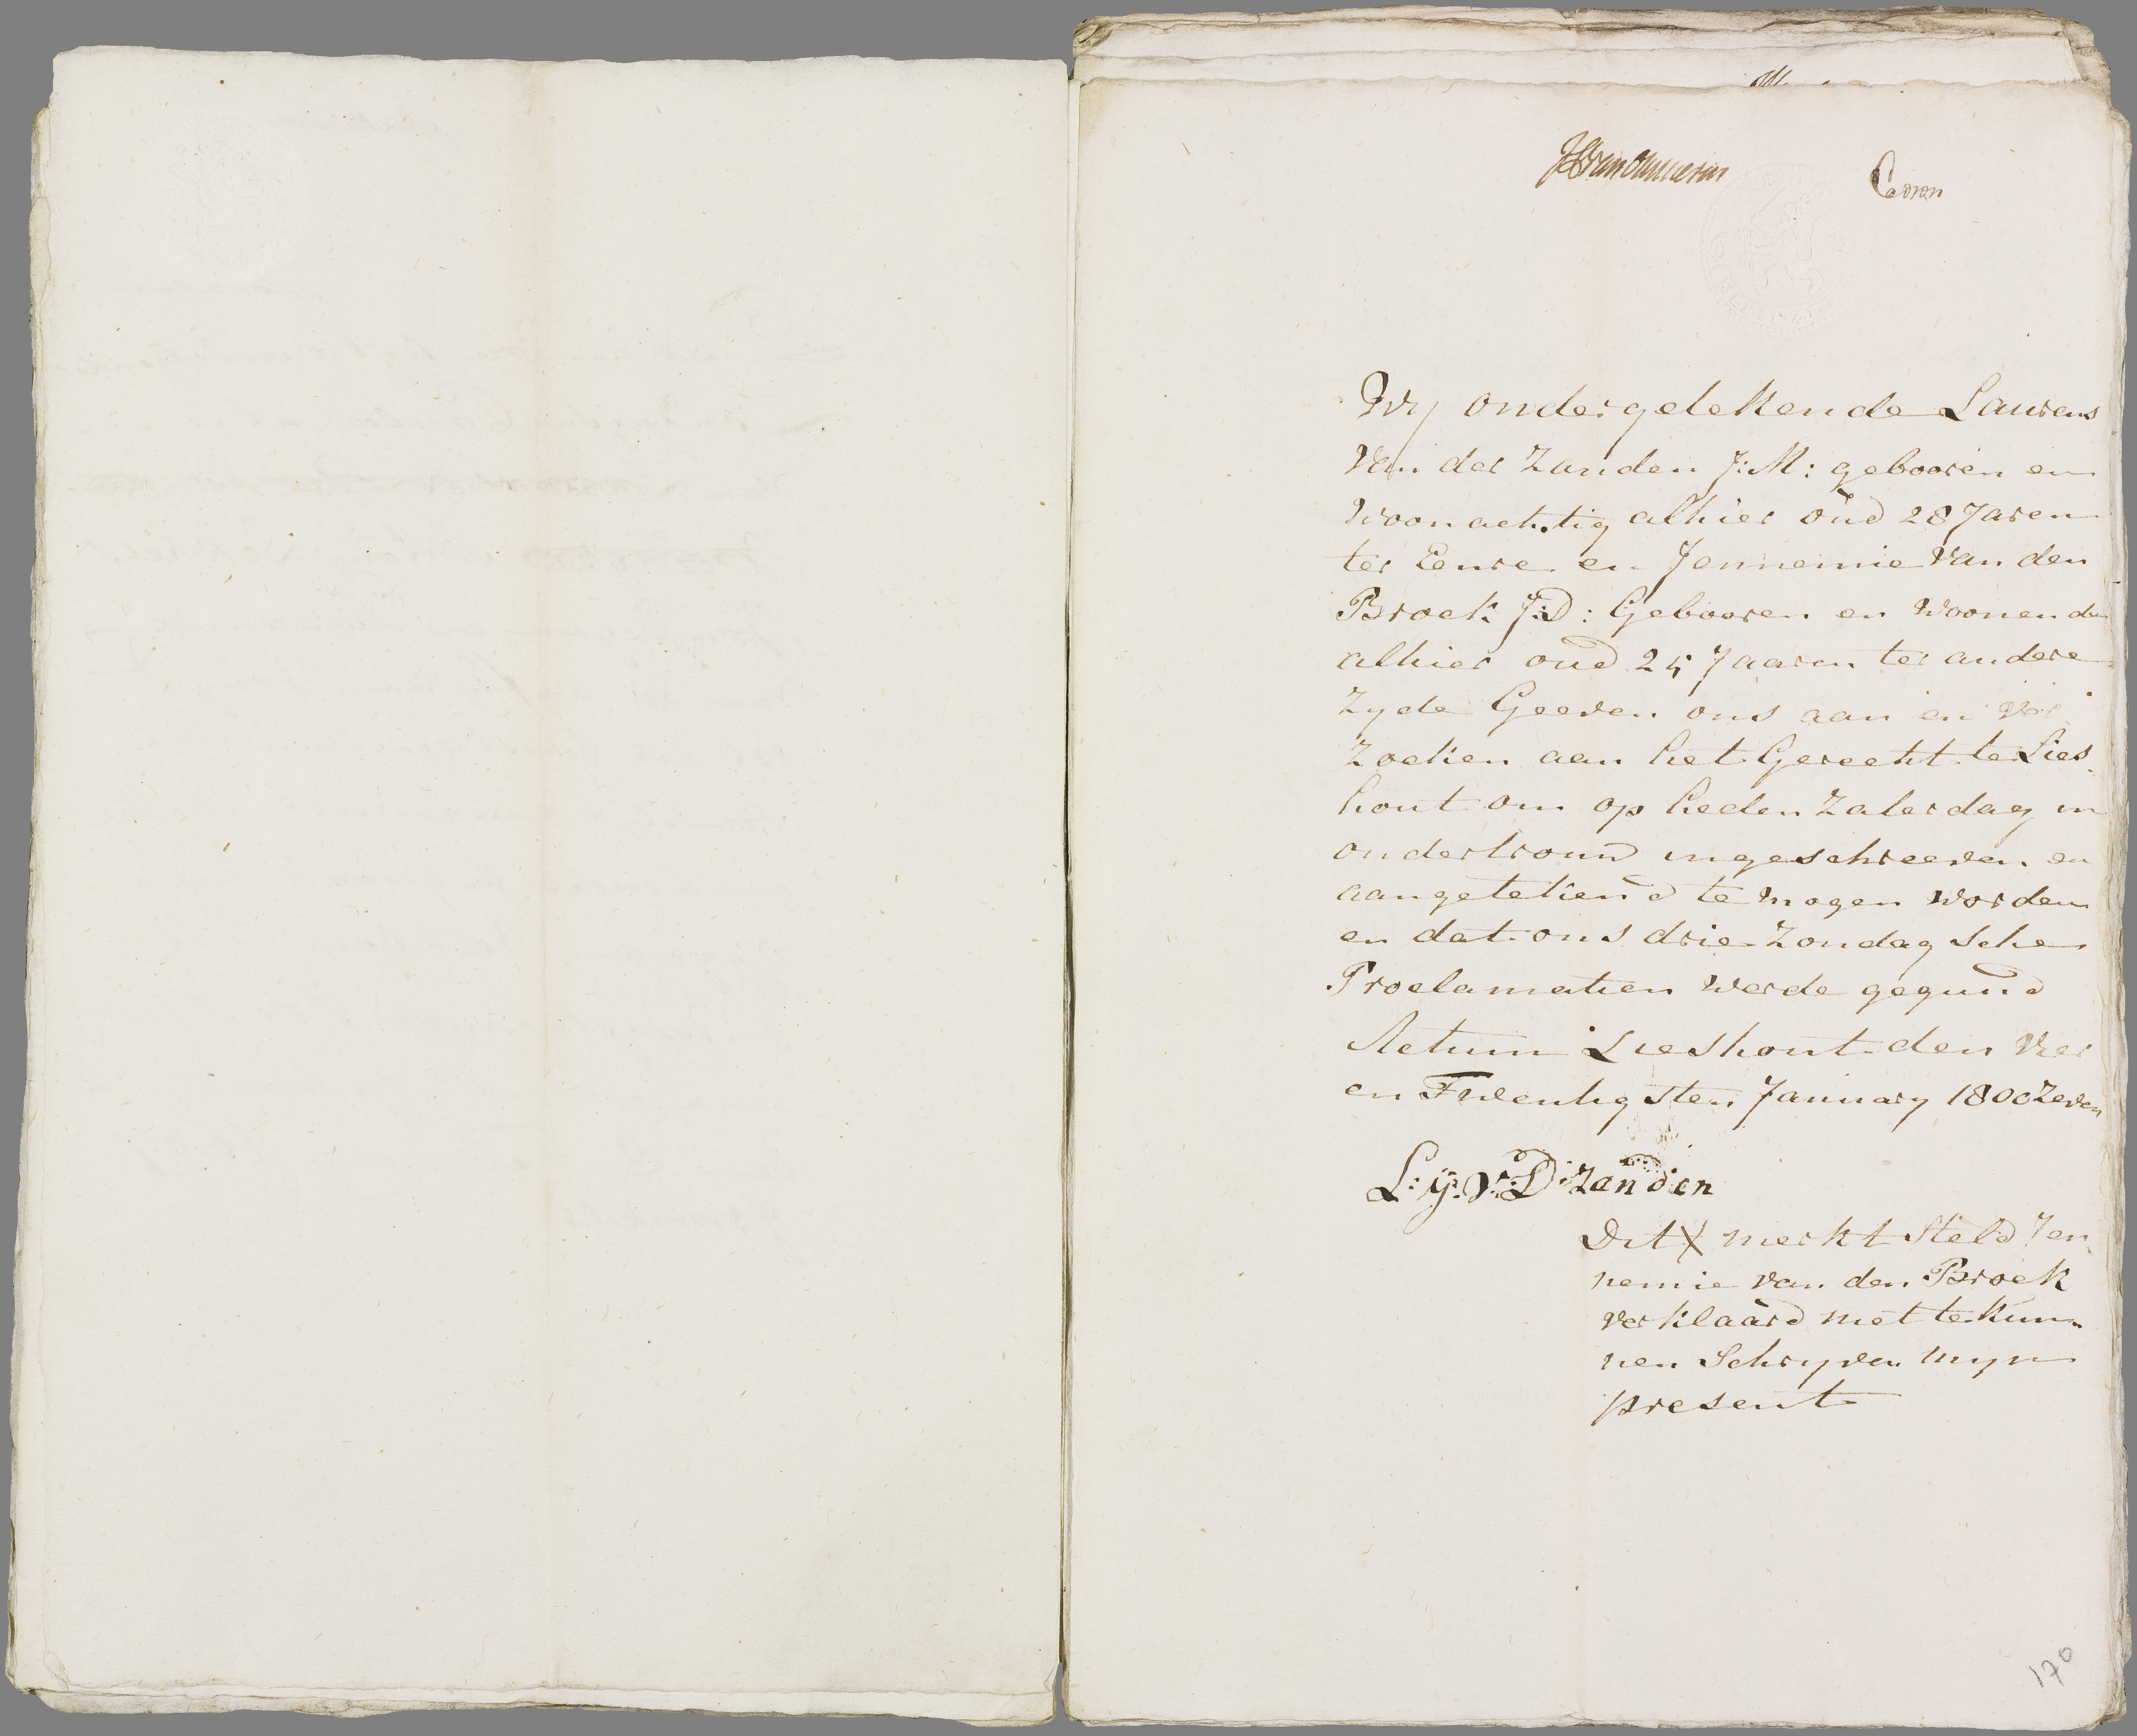 Coren
Wy ondergetekende Laurens
Van der Zanden J:M: gebooren en
Woonachtig alhier oud 28 Jaren
ter Eenre en Jennemie Van den
Broek J:D: Gebooren en Woonende
alhier oud 25 Jaaren ter andere
Zyde Geeven ons aan en Ver
Zoeken aan het Gerecht te Lies
hout om op heden Zaterdag in
ondertrouw ingeschreeven en
aangetekend te mogen worden
en dat ons drie Zondagsche
Proclamatien werde gegund
Actum Lieshout den Vier
en Twentigsten January 1800 Zeven
L: y: V: D: Zanden
Dit X merkt Steld Jen
nemie van den Broek
verklaard niet te kun
nen Schryven myn
present
170